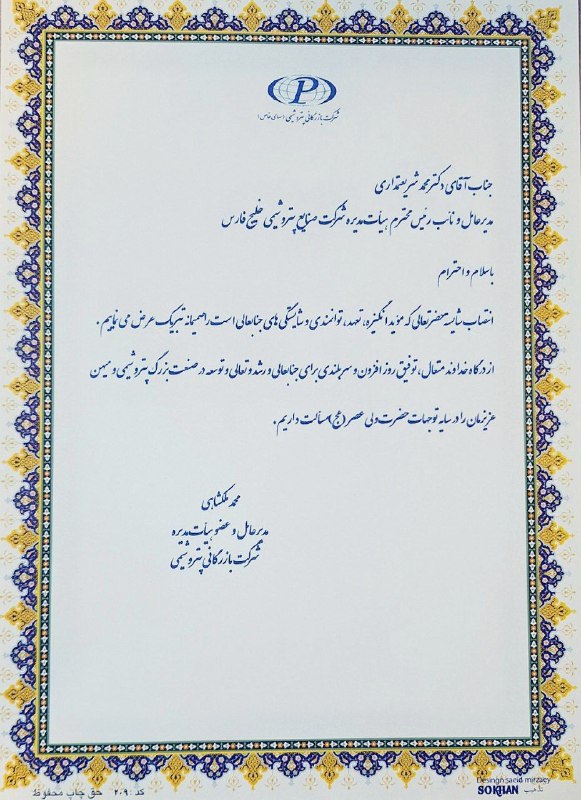 P
شرکت بازرگانی پتروشیمی (سهامی خاص)
جناب آقای دکتر محمد شریعتمداری
مدیرعامل و نائب رئیس محترم هیأت مدیره شرکت صنایع پتروشیمی خلیج فارس
باسلام و احترام
انتصاب شایسته حضرتعالی که مؤید انگیزه، تعهد، توانمندی و شایستگی های جنابعالی است را صمیمانه تبریک عرض می نماییم.
از درگاه خداوند متعال، توفیق روز افزون و سربلندی برای جنابعالی و رشد و تعالی و توسعه در صنعت بزرگ پتروشیمی و میهن
عزیزمان را در سایه توجهات حضرت ولی عصر (عج) مسألت داریم.
محمد ملکشاهی
مدیرعامل و عضو هیأت مدیره
شرکت بازرگانی پتروشیمی
کد: ۲۰۹ حق چاپ محفوظ
Desingh saeid mirzaey
SOKHAN تذهیب